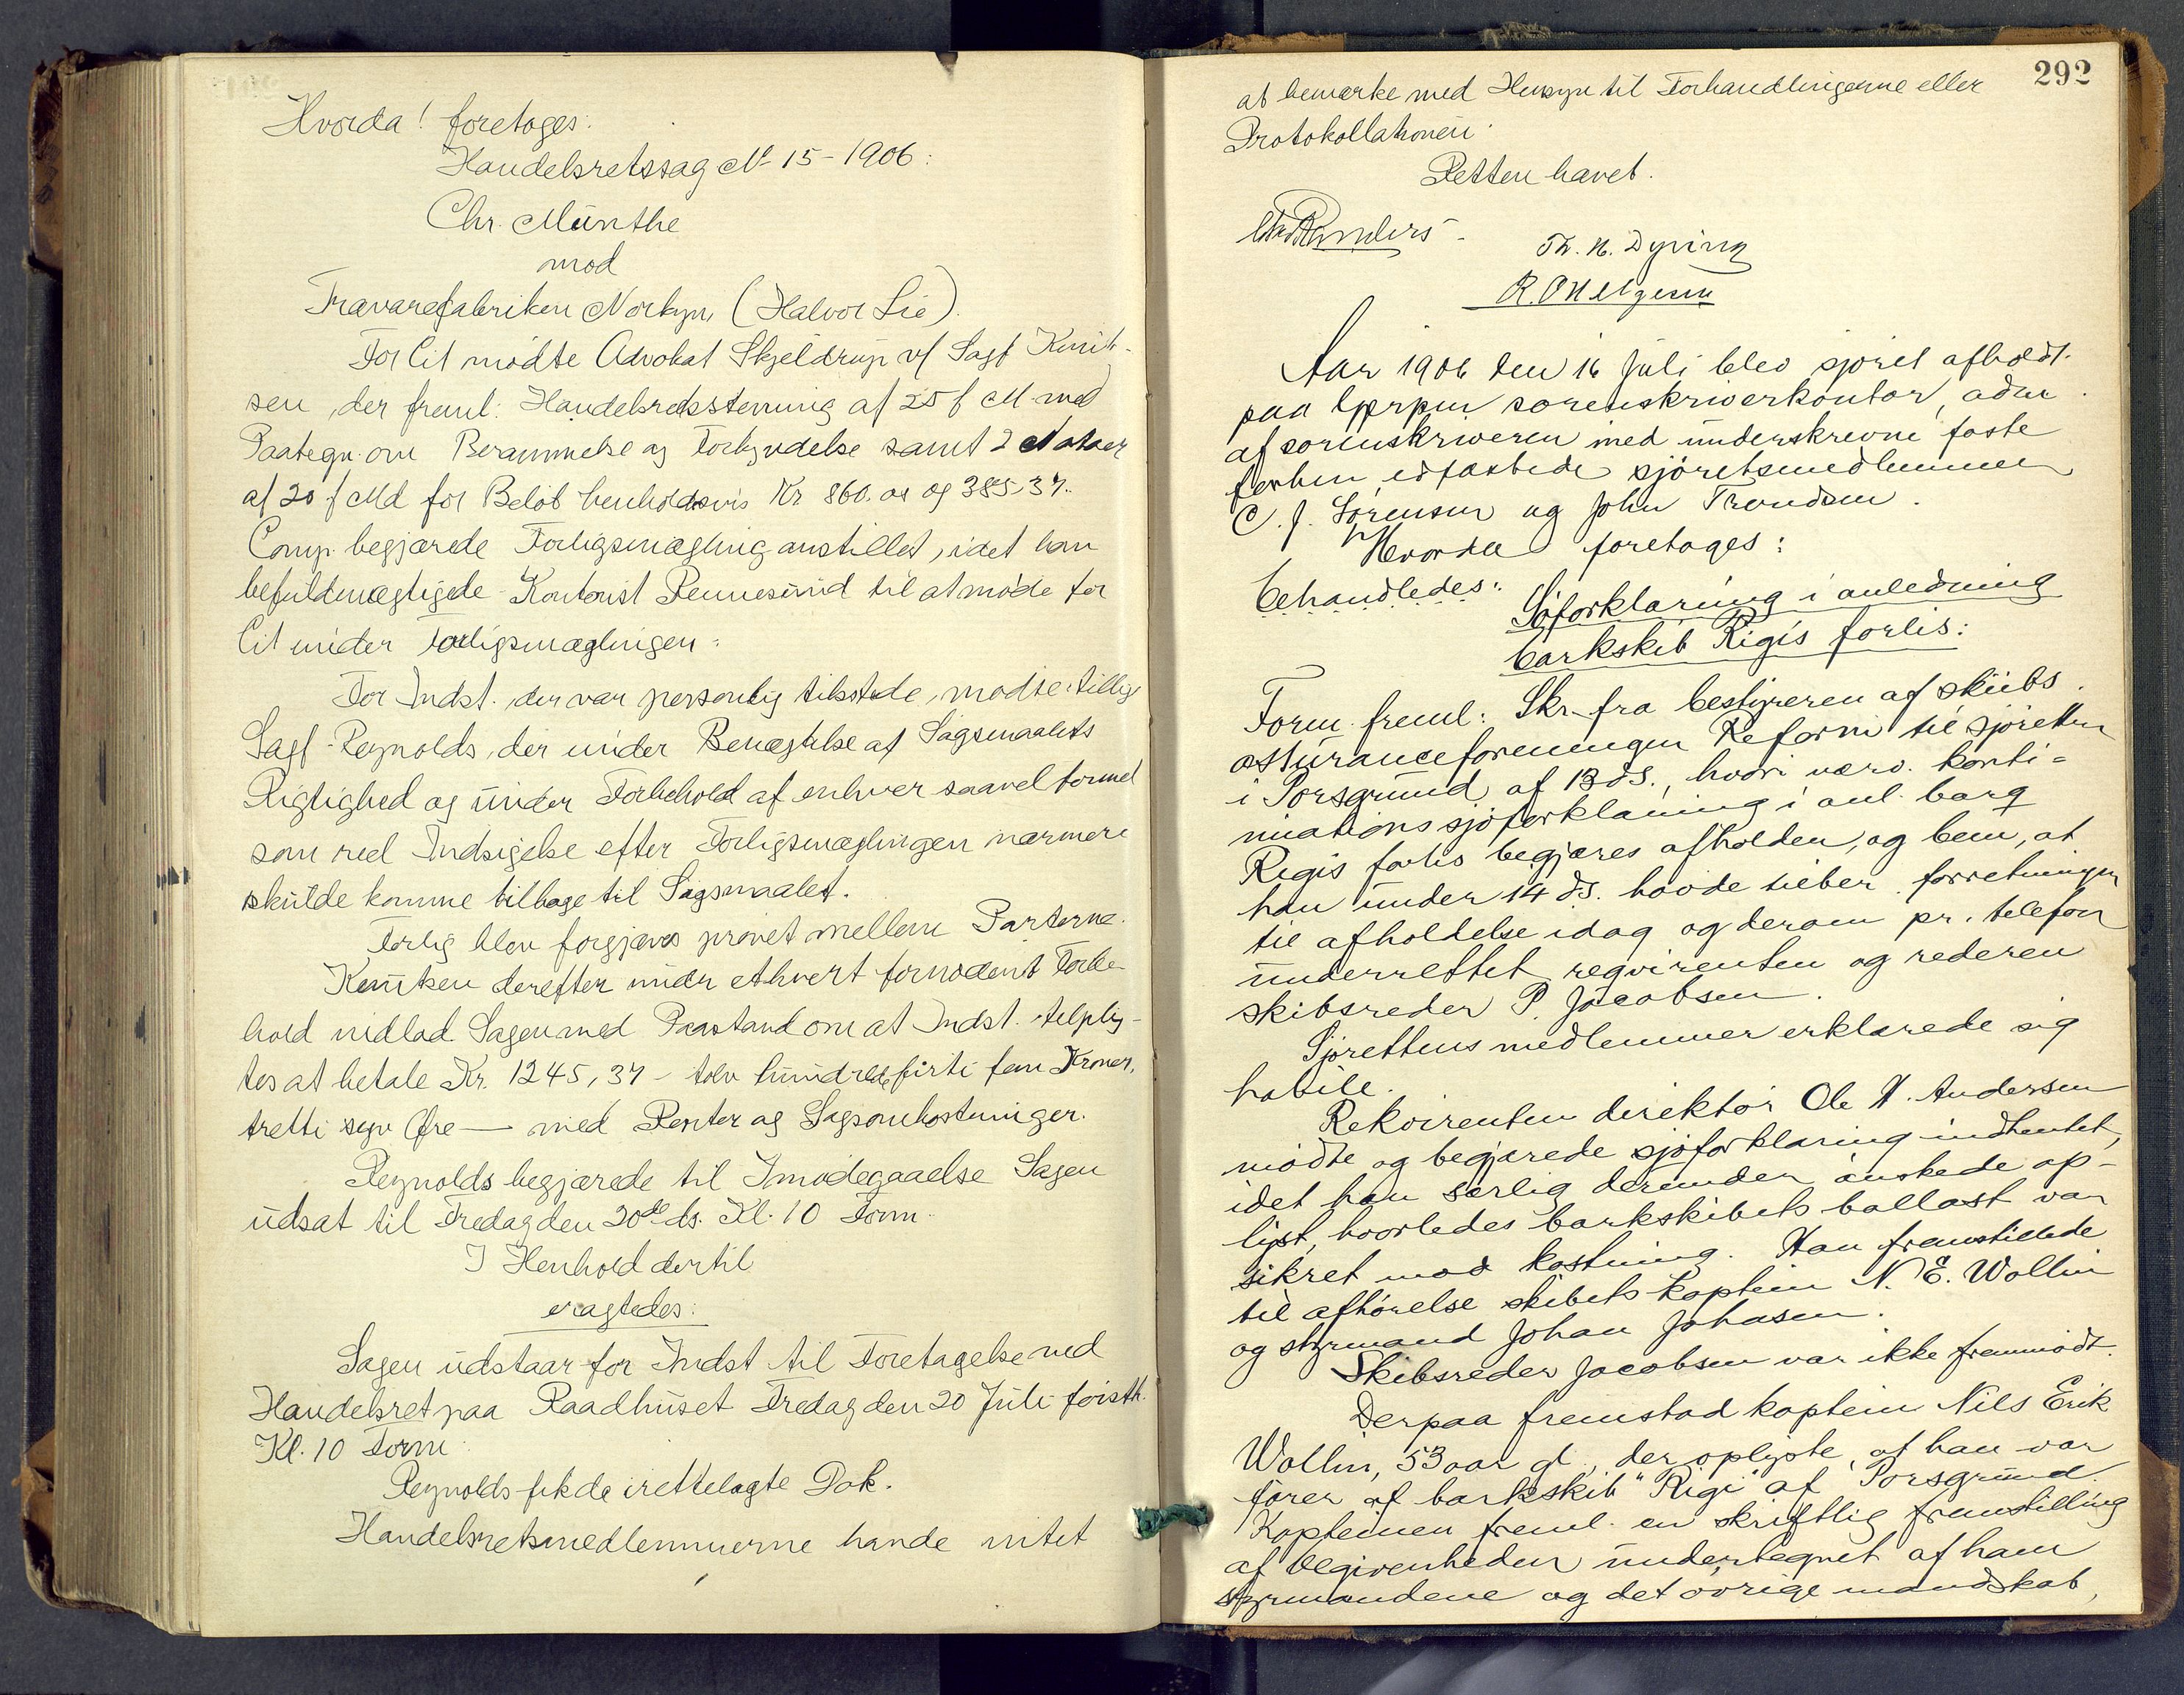 Hvorda! foretoges:
Handelsretssag No 15-1906:
Chr. Münthe
mod
Trævarefabriken Norkyn, (Halvor Lie).
For Cit mødte Advokat Skjeldrup v/ Sagf Knüt-
sen, der freml. Handelsretsstevning af 25 f M. med
Paategn. om Berammelse og Forkyndelse samt 2 Notaer
af 20 f Md for Beløb henholdsvis Kr 860.00 og 385,37.
Comp. begjærede Forligsmægling anstillet, idet han
befuldmægtigede Kontorist Rennesund til at møde for
Cit under Forligsmæglingen:
For Indst. der var personlig tilstede, mødte tillige
Sagf Reynolds, der under Benægtelse af Søgsmaalets
Rigtighed og under Forbehold af enhver saavel formel
som reel Indsigelse efter Forligsmæglingen nærmere
skulde komme tilbage til Søgsmaalet.
Forlig blev forgjæves prøvet mellem Parterne.
Knutsen derefter under ethvert fornødent Forbe-
hold indlod Sagen med Paastand om at Indst. tilplig-
tes at betale Kr. 1245,37 - tolv hundrede firti fem Kroner,
tretti syv Øre — med Renter og Sagsomkostninger.
Reynolds begjærede til Imødegaaelse Sagen
udsat til Fredag den 20de ds. Kl. 10 Form.
I Henhold dertil
eragtedes:
Sagen udstaar for Indst til Foretagelse ved
Handelsret paa Raadhuset Fredag den 20 Juli førsth.
Kl. 10 Form.
Reynolds fik de irettelagte Dok.
Handelsretsmedlemmerne havde intet
292
at bemærke med Hensyn til Forhandlingerne eller
Protokollationen.
Retten hævet.
Th. N. Dyring
Aar 1906 den 16 Juli blev sjøret afholdt
paa Gjerpen sorenskriverkontor, adm.
af sorenskriveren med underskrevne faste
forhen edfæstede sjøretsmedlemmer
C. J. Sørensen og John Trondsen.
Hvorda foretoges:
behandledes:
Søforklaring i anledning
barkskib Rigis forlis:
Form. freml: Skr. fra bestyreren af skibs
assuranceforeningen Reform til sjøretten
i Porsgrund af 13 ds., hvori værv. konti=
nuations sjøforklaring i anl. barq
Rigis forlis begjæres afholden, og bem., at
han under 14 ds. havde ber. forretningen
til afholdelse idag og derom pr. telefon
underrettet reqvirenten og rederen
skibsreder P. Jacobsen.
Sjørettens medlemmer erklærede sig
habile.
Rekvirenten direktør Ole A. Andersen
mødte og begjærede sjøforklaring indhentet,
idet han særlig derunder ønskede op-
lyst, hvorledes barkskibets ballast var
sikret mod kastning. Han fremstillede
til afhørelse skibets kaptein N. E. Wollin
og styrmand Johan Johasen.
Skibsreder Jacobsen var ikke fremmødt.
Derpaa fremstod kaptein Nils Erik
Wollin, 53 aar gl., der oplyste, at han var
fører af barkskib "Rigi" af Porsgrund.
Kapteinen freml. en skriftlig fremstilling
af begivenheden undertegnet af ham
styrmandene og det øvrige mandskab,